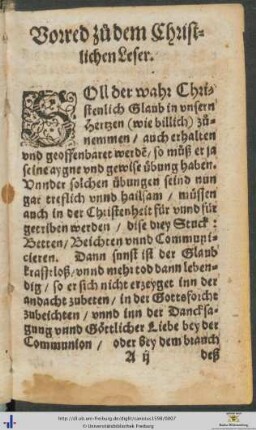 Vorred zů dem Christ-
lichen Leser.
SOll der wahr Chri-
stenlich Glaub in vnsern
Hertzen (wie billich) zů-
nemmen / auch erhalten
vnd geoffenbaret werdē / so můß er ja
seine aygne vnd gewise übung haben.
Vnnder solchen übungen seind nun
gar treflich vnnd hailsam / müssen
auch in der Christenheit für vnnd für
getriben werden / dise drey Stuck:
Betten / Beichten vnnd Communi-
cieren. Dann sunst ist der Glaub
krafftloß / vnnd mehr tod dann leben-
dig / so er sich nicht erzeyget inn der
andacht zubeten / in der Gottsforcht
zubeichten / vnnd inn der Dancksa-
gung vnnd Göttlicher Liebe bey der
Communion / oder bey dem brauch
A ij deß
http://dl.ub.uni-freiburg.de/diglit/canisius1590/0007
© Universitätsbibliothek Freiburg